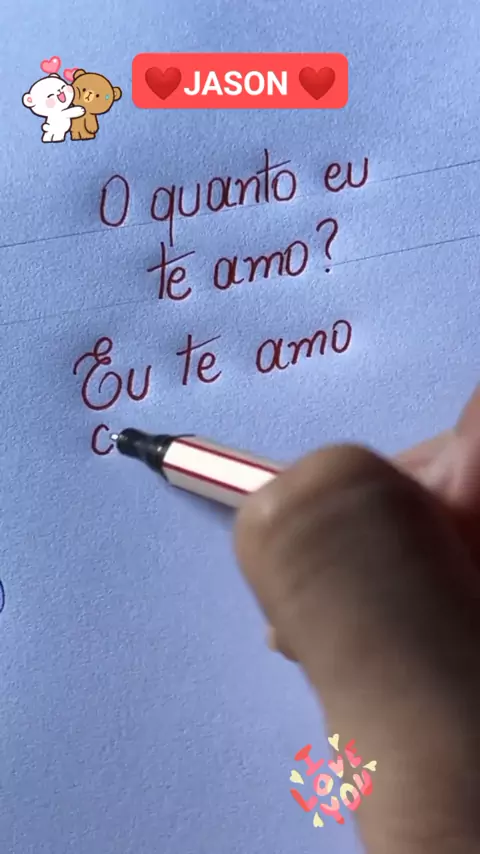 ❤️JASON ❤️
O quanto eu
te amo?
Eu te amo
c
I
LOVE
YOU